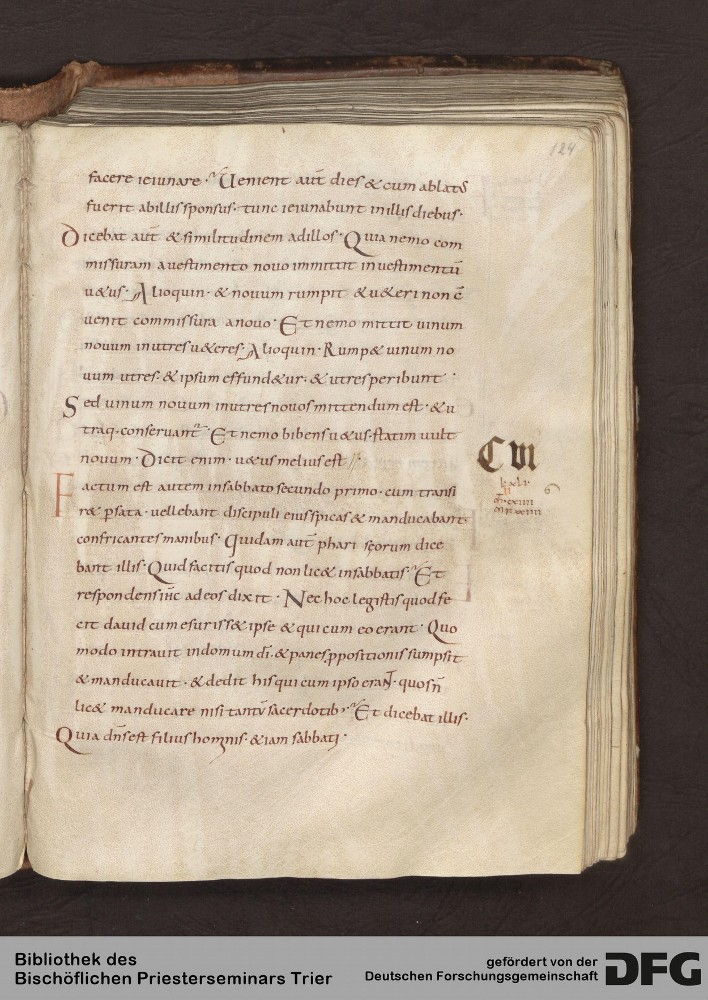 124
facere ieiunare · Uenient aut̄ dies & cum ablatus
fuerit ab illis sponsus · tunc ieiunabunt in illis diebus ·
Dicebat aut̄ & similitudinem ad illos · Quia nemo com
missuram a uestimento nouo immittit in uestimentū
u&us · Alioquin · & nouum rumpit & u&eri non c̄
uenit commissura a nouo · Et nemo mittit uinum
nouum in utres u&eres · Alioquin · Rump& uinum no
uum utres · & ipsum effund&ur · & utres peribunt ·
Sed uinum nouum in utres nouos mittendum est · & u
traq · conseruant̄ · Et nemo bibens u&us · statim uult
nouum · Dicit enim · u&us melius est
CVI
Factum est autem in sabbato secundo primo · cum transi
r& p̱ sata · uellebant discipuli eius spicas & manducabant
confricantes manibus · Quidam aut̄ phariseorum dice
bant illis · Quid facitis quod non lic& in sabbatis · Et
respondens ih̄c ad eos dixit · Nec hoc legistis quod fe
cit dauid cum esuriss& ipse & qui cum eo erant · Quo
modo intrauit in domum dī · & panes ppositionis sumpsit
& manducauit · & dedit his qui cum ipso erant · quos n̄
lic& manducare nisi tantū sacerdotib · Et dicebat illis ·
Quia dn̄s est filius hominis · &iam sabbati ·
Bibliothek des
Bischöflichen Priesterseminars Trier
gefördert von der
Deutschen Forschungsgemeinschaft
DFG